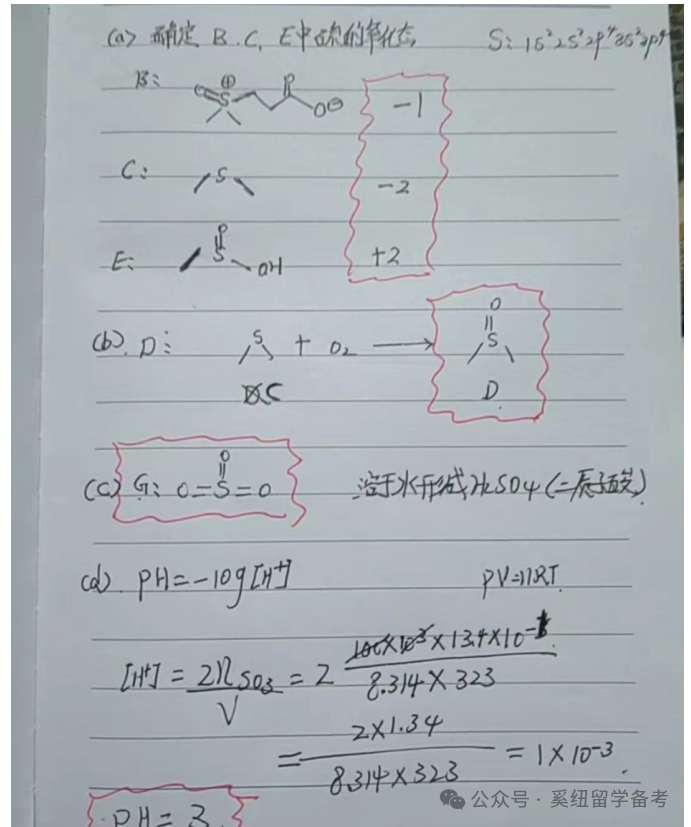 (a) 确定 B.C.E中硫的氧化态 S: 1S²2S²2P⁴3S²3P⁴
B: S ⊕ O⊖ -1
C: S -2
E: S OH +2
(b). D: S + O₂ → O S
C D
(c) G: O=S=O O 溶于水形成H₂SO₄(二质子酸)
(d). PH=-log[H⁺] PV=nRT.
[H⁺] = 2n SO₃ / V = 2 ×13.4×10⁻¹ / 8.314×323
= 2×1.34 / 8.314×323 = 1×10⁻³.
PH=3
公众号·奚纽留学备考